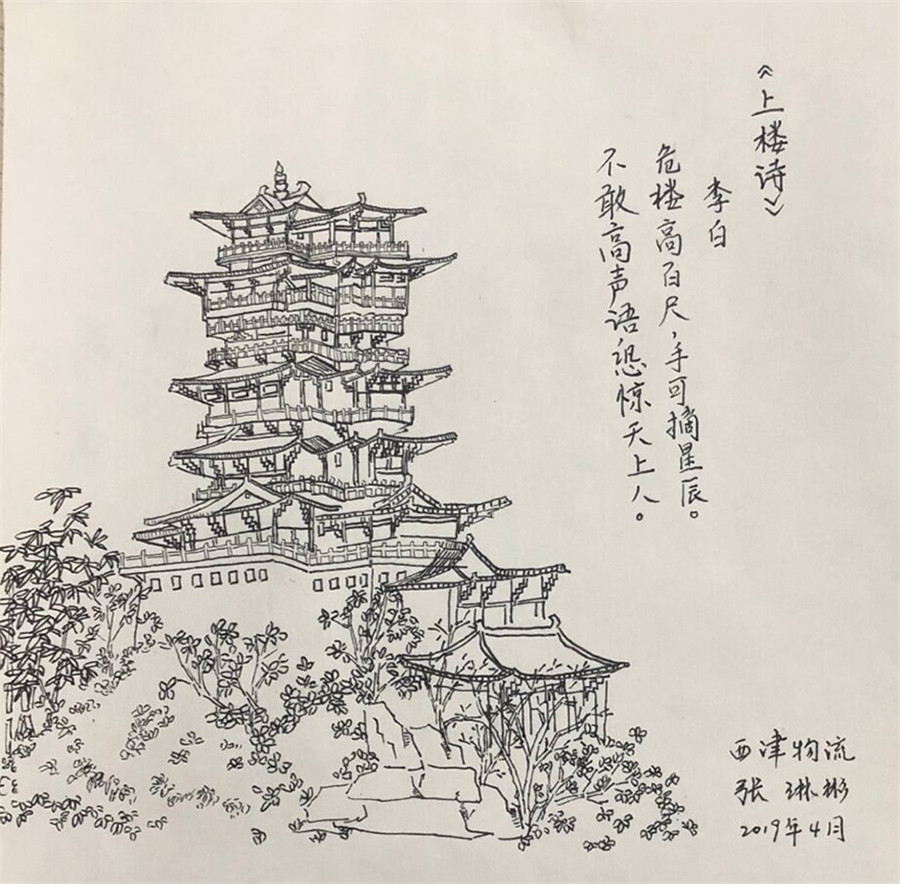 《上楼诗》
李白
危楼高百尺，手可摘星辰。
不敢高声语恐惊天上人。
西津物流
张琳彬
2019年4月